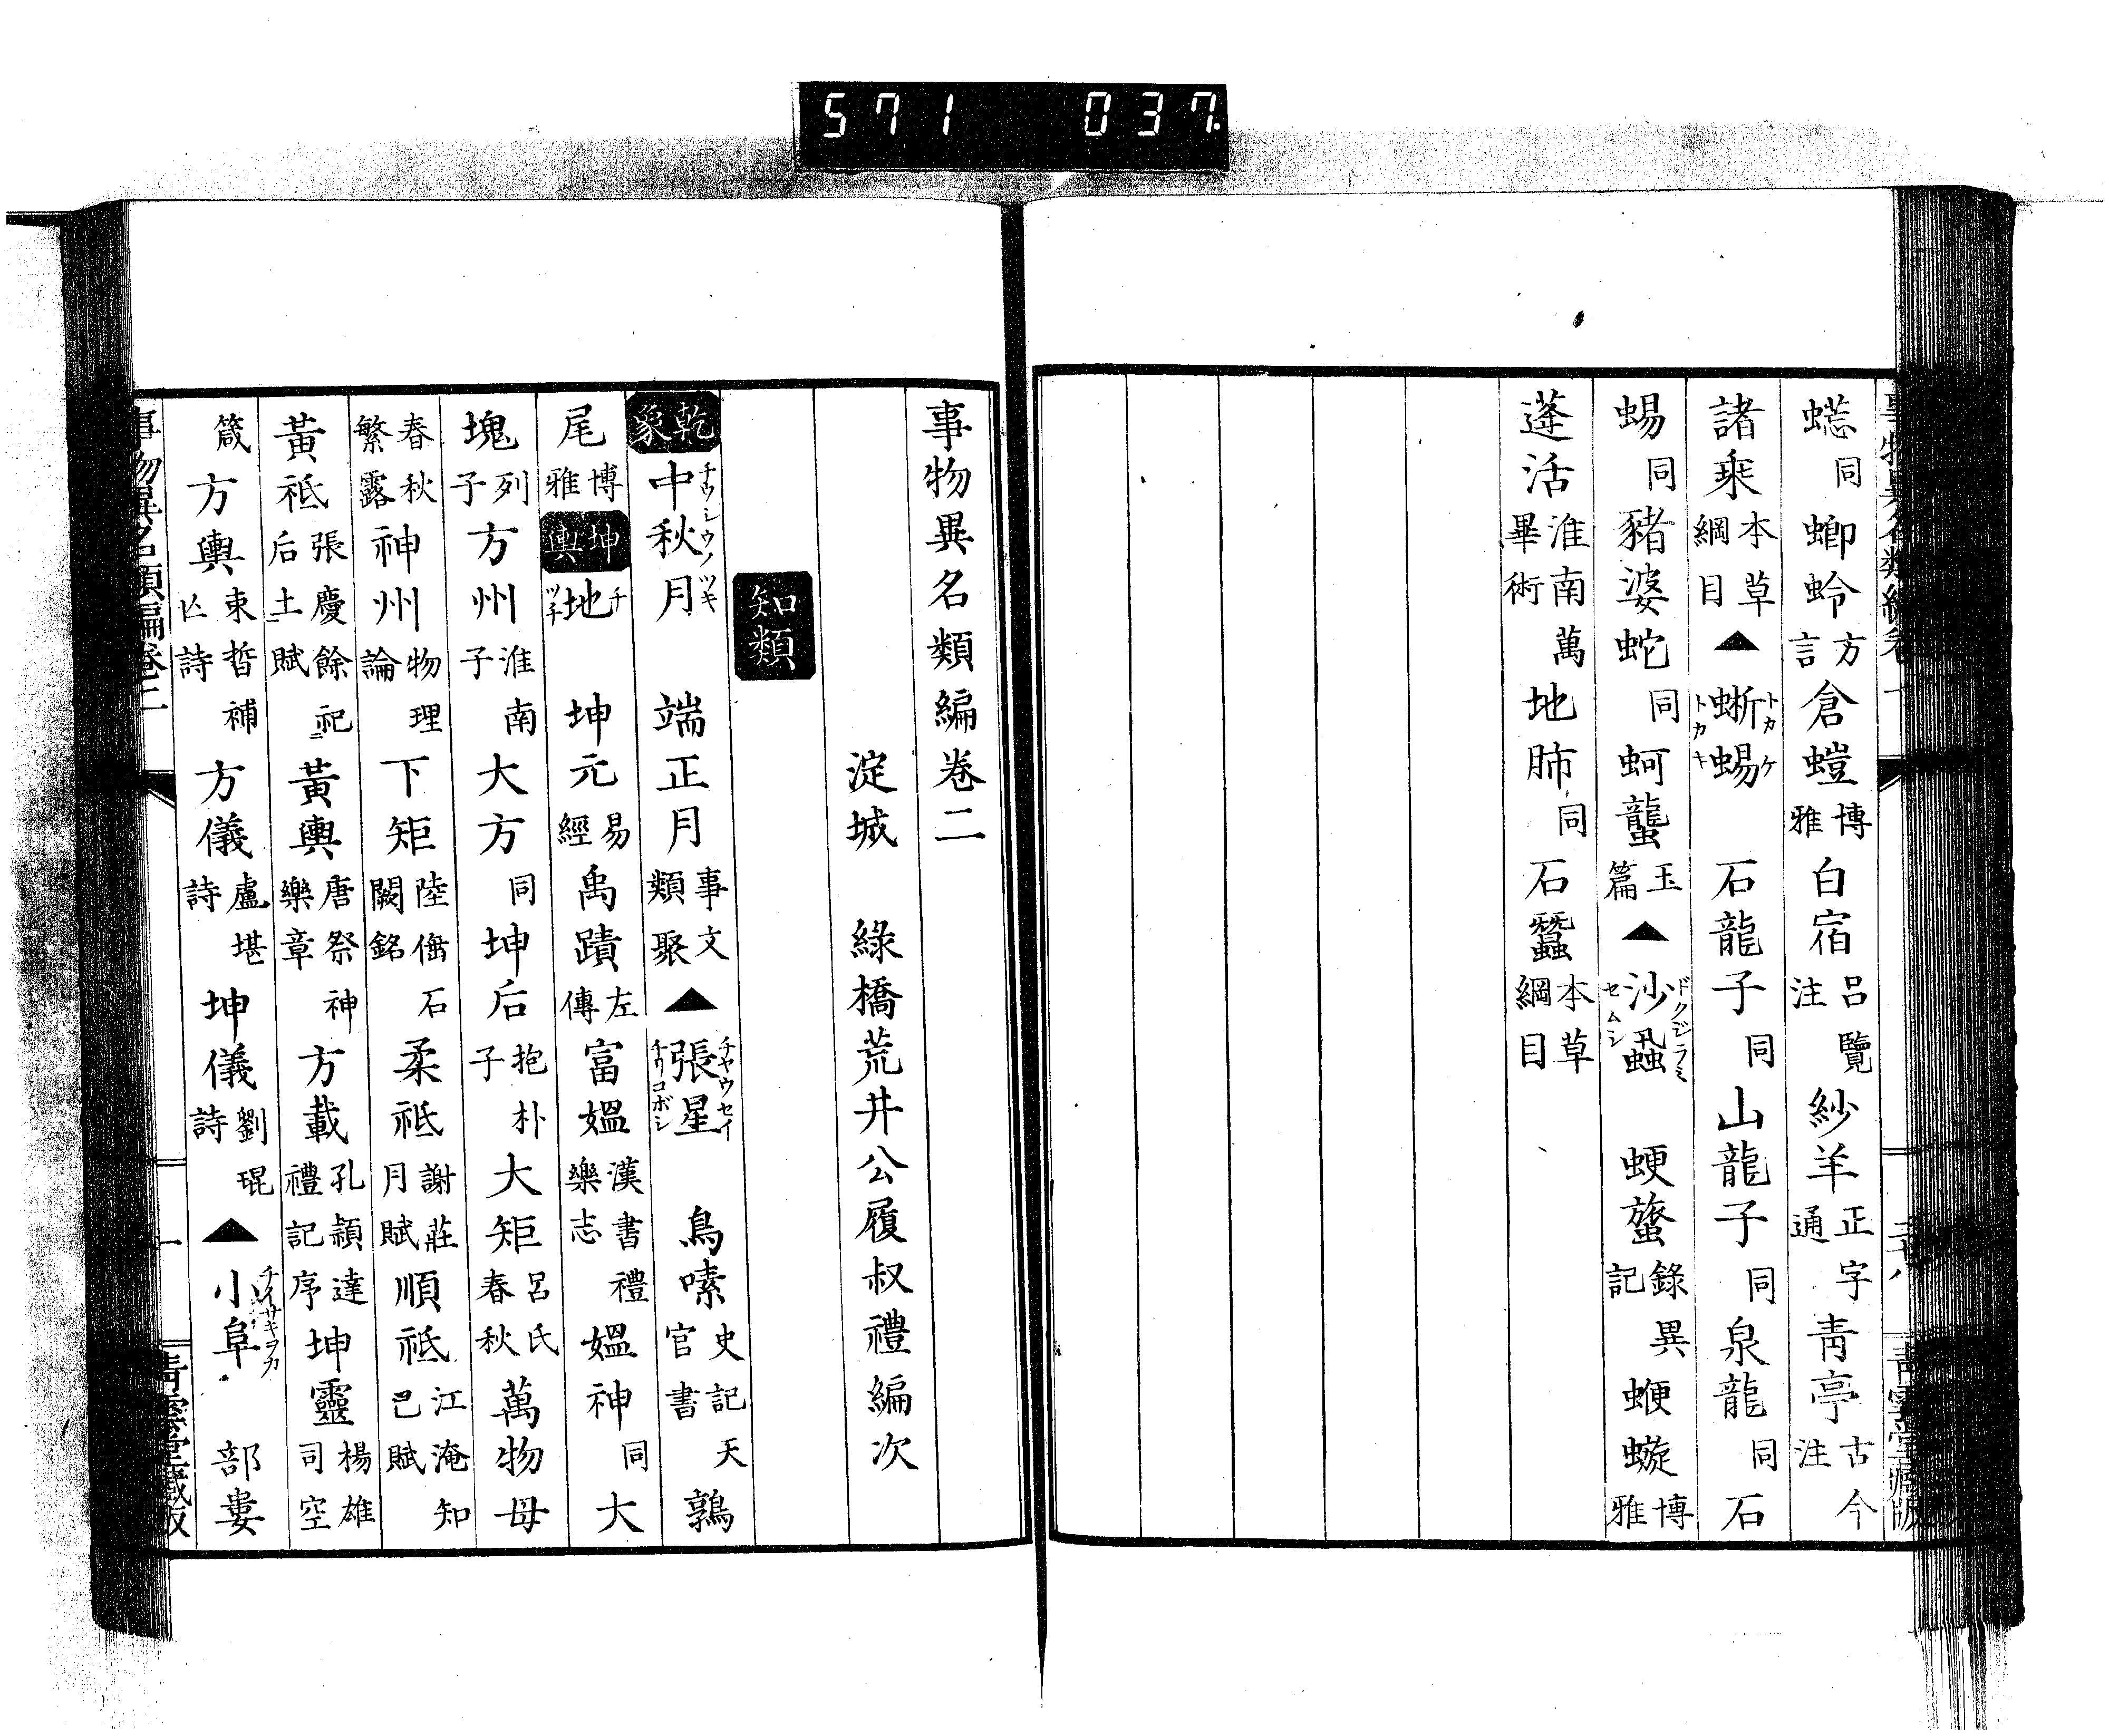 571 037
蟋同蝍蛉方言倉螘博雅白宿呂覽注紗羊正字通青亭古今注
諸乘本草綱目▲蜥蜴トカケトカキ石龍子同山龍子同泉龍同石
蜴同豬婆蛇同蚵蠪玉篇▲沙蝨ドクジラミセムシ蛷螫錄異記蝘𧐖博雅
蓬活淮南萬畢術地肺同石蠶本草綱目
事物異名類編卷二
淀城 綠橋荒井公履叔禮編次
知類
乾象中秋月チウシウノツキ端正月事文類聚▲張星チヤウセイチリコボシ鳥嗉史記天官書鶉
尾博雅坤輿地チツチ坤元易經禹蹟左傳富媼漢書禮樂志媼神同大
塊列子方州淮南子大方同坤后抱朴子大矩呂氏春秋萬物母
春秋繁露神州物理論下矩陸倕石闕銘柔祗謝莊月賦順祗江淹知己賦
黃祗張慶餘祀后土賦黃輿唐祭神樂章方載孔穎達禮記序坤靈楊雄司空
箴方輿東晳補亡詩方儀盧堪詩坤儀劉琨詩▲小阜チイサキヲカ部婁
事物異名類編卷二 一 青雲堂藏版